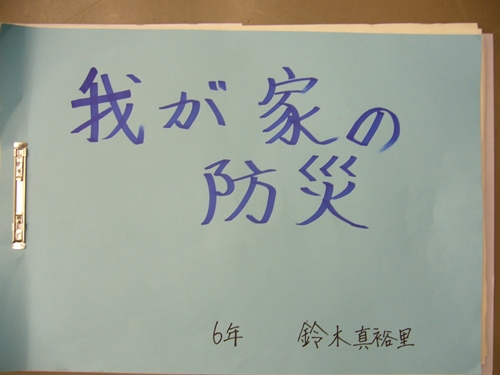 我が家の
防災
6年 鈴木真裕里